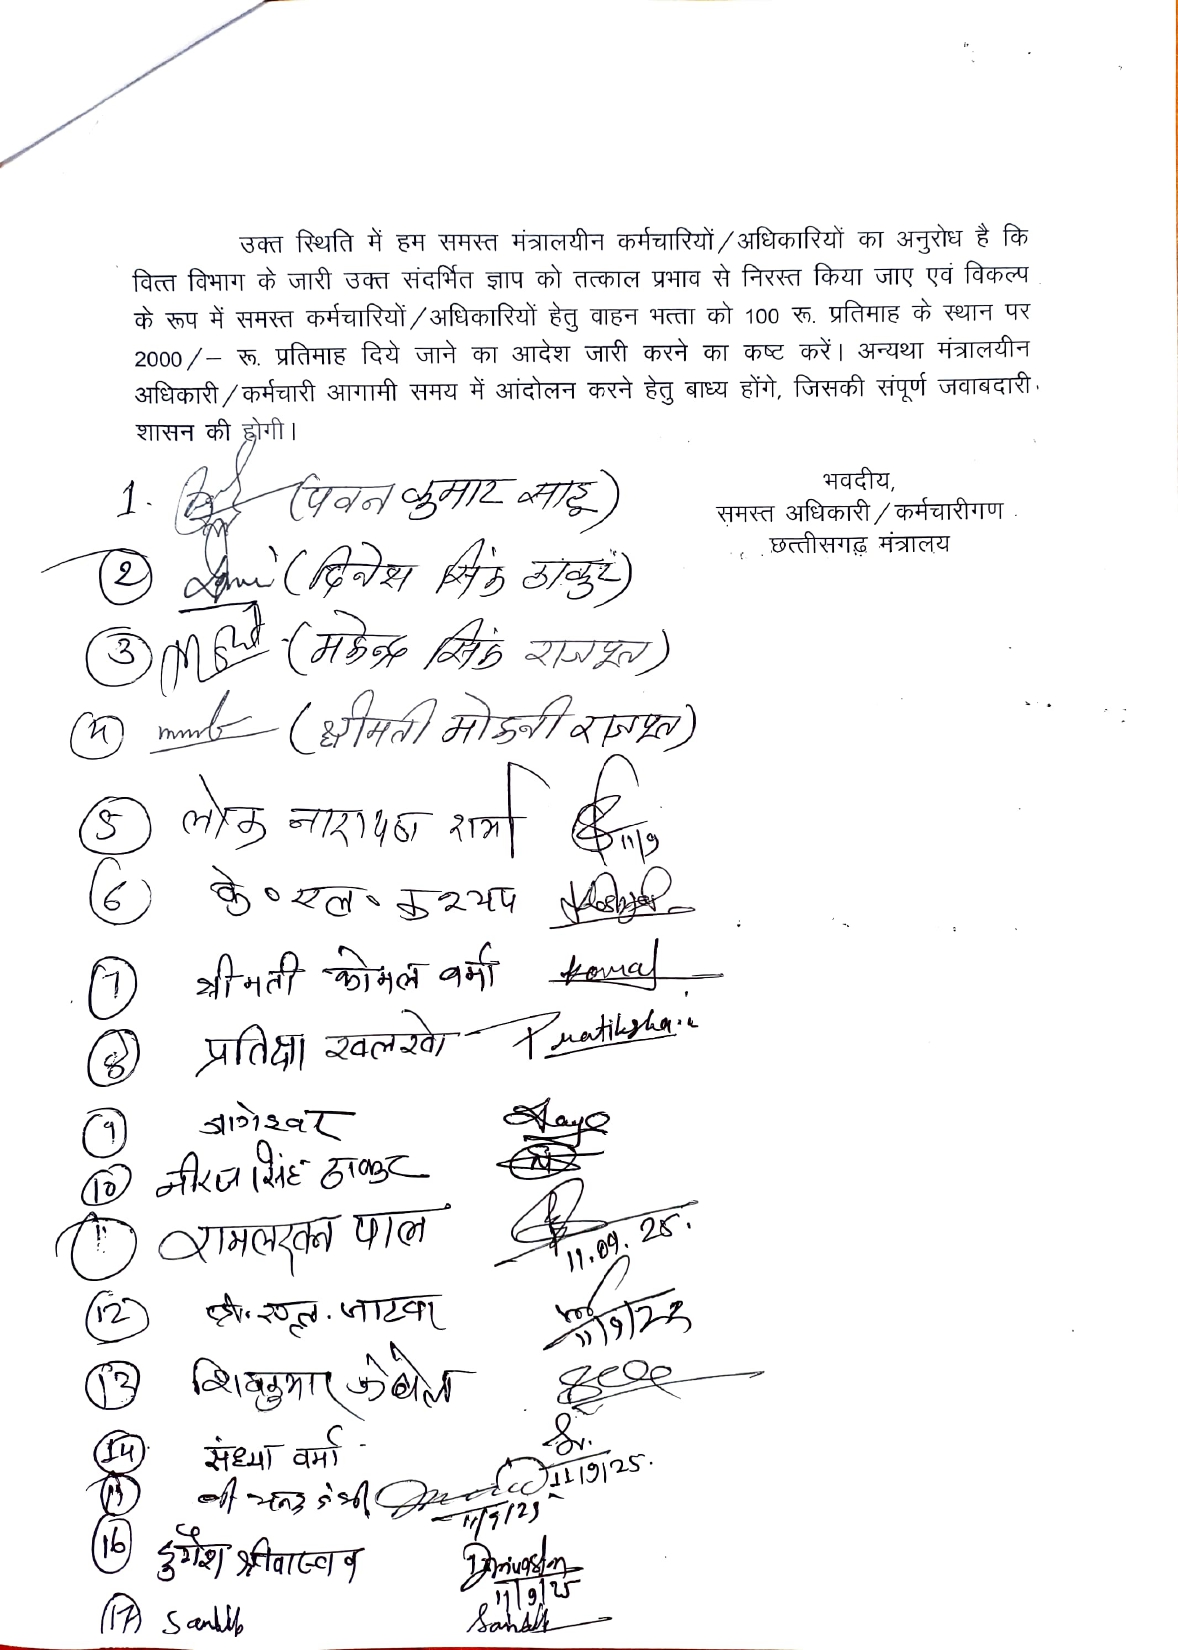 उक्त स्थिति में हम समस्त मंत्रालयीन कर्मचारियों/अधिकारियों का अनुरोध है कि
वित्त विभाग के जारी उक्त संदर्भित ज्ञाप को तत्काल प्रभाव से निरस्त किया जाए एवं विकल्प
के रूप में समस्त कर्मचारियों/अधिकारियों हेतु वाहन भत्ता को 100 रू. प्रतिमाह के स्थान पर
2000/– रू. प्रतिमाह दिये जाने का आदेश जारी करने का कष्ट करें। अन्यथा मंत्रालयीन
अधिकारी/कर्मचारी आगामी समय में आंदोलन करने हेतु बाध्य होंगे, जिसकी संपूर्ण जवाबदारी
शासन की होगी।
भवदीय,
समस्त अधिकारी/कर्मचारीगण
छत्तीसगढ़ मंत्रालय
1. (पवन कुमार साहू)
2 (दिनेश सिंह ठाकुर)
3 (महेन्द्र सिंह राजपूत)
4 (श्रीमती मोहनी राजपूत)
5 लोक नारायण शर्मा 11/9
6 के० एल० कश्यप
7 श्रीमती कोमल वर्मा Komal
8 प्रतिक्षा खलखो Pratiksha
9 बागेश्वर
10 नीरज सिंह ठाकुर
11 रामलखन पाल 11.09.25.
12 जाटवर 11/9/25
13 शिवकुमार
14 संध्या वर्मा 11/9/25.
15 11/9/25
16 दुर्गेश श्रीवास्तव 11/9/25
17 Sandip